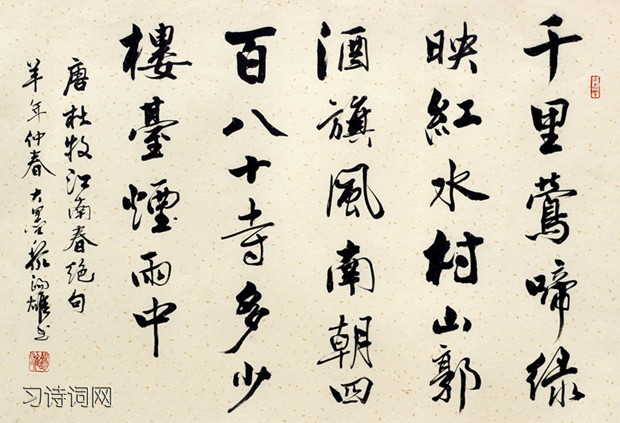 千里鶯啼绿
映紅水村山郭
酒旗風南朝四
百八十寺多少
樓臺煙雨中
唐杜牧江南春绝句
羊年仲春大墨
习诗词网